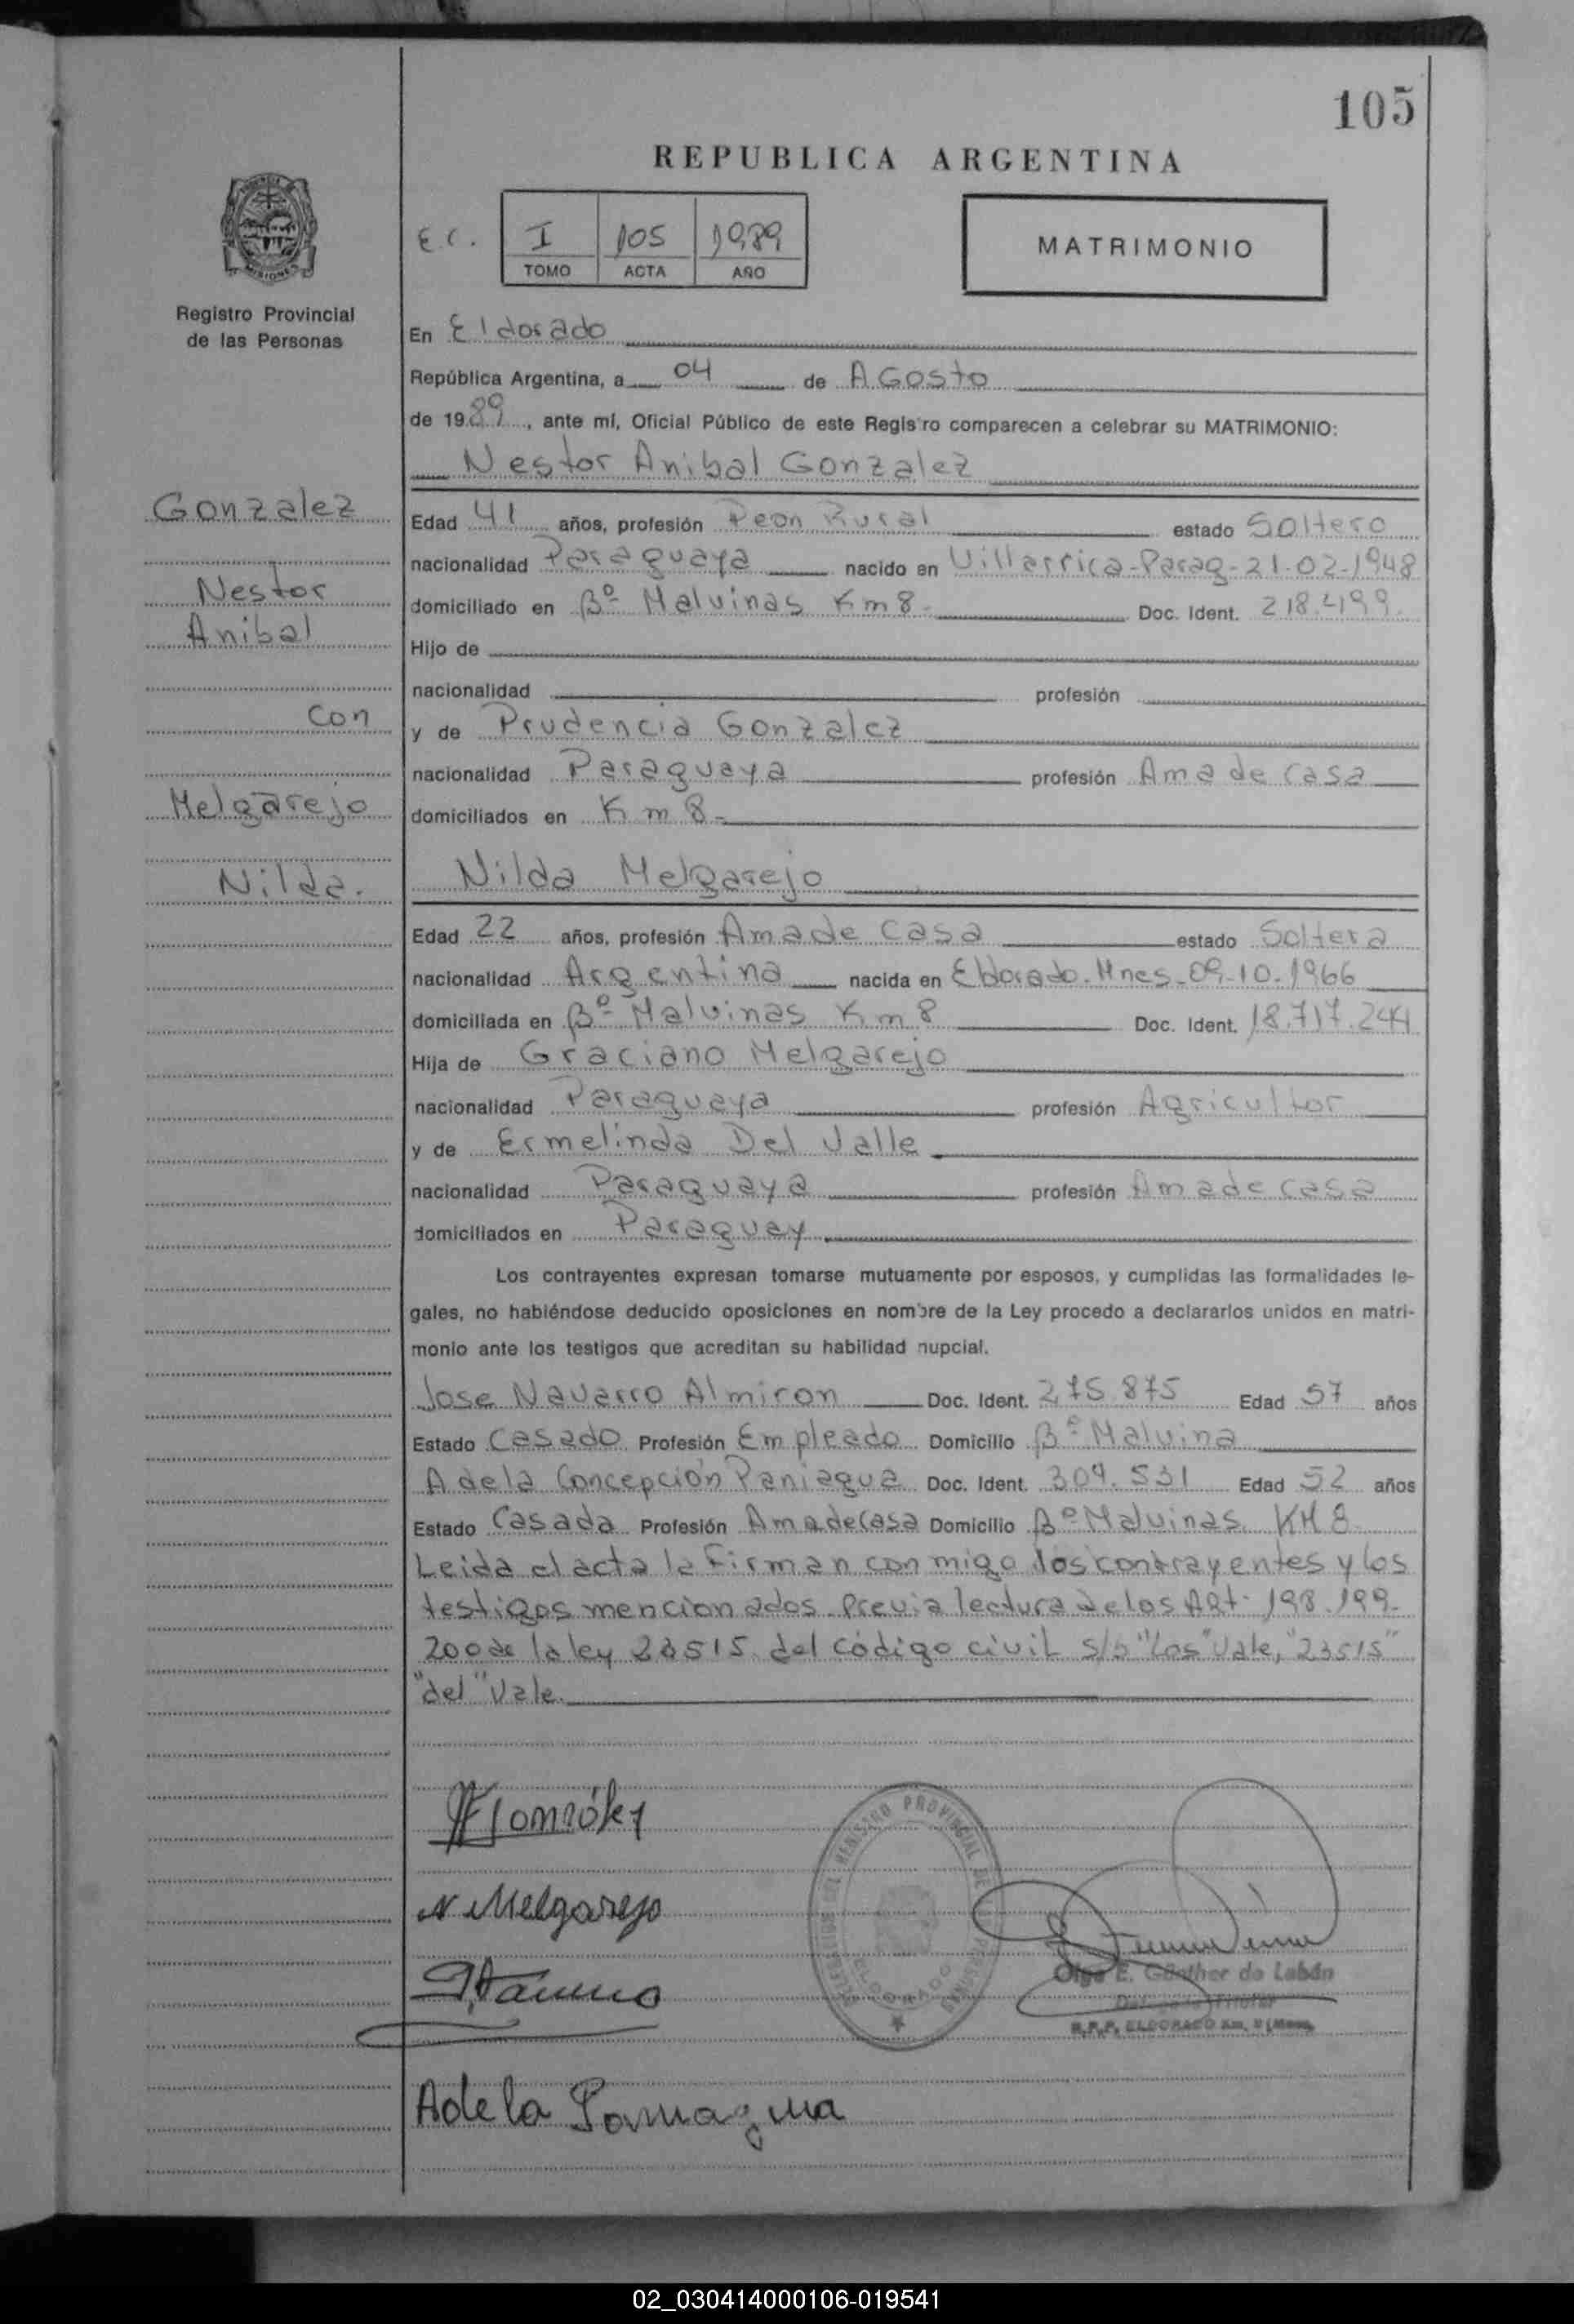 105
REPUBLICA ARGENTINA
E.C.
I 105 1989
TOMO ACTA AÑO
MATRIMONIO
MISIONES
Registro Provincial
de las Personas
Gonzalez
Nestor
Anibal
con
Melgarejo
Nilda.
En Eldorado
República Argentina, a 04 de AGosto
de 1989, ante mí, Oficial Público de este Registro comparecen a celebrar su MATRIMONIO:
Nestor Anibal Gonzalez
Edad 41 años, profesión Peon Rural estado Soltero
nacionalidad Paraguaya nacido en Villarrica-Parag-21-02-1948
domiciliado en Bº Malvinas Km 8- Doc. Ident. 218.499.
Hijo de
nacionalidad profesión
y de Prudencia Gonzalez
nacionalidad Paraguaya profesión Ama de casa
domiciliados en Km 8-
Nilda Melgarejo
Edad 22 años, profesión Ama de casa estado Soltera
nacionalidad Argentina nacida en Eldorado. Mnes-09-10-1966
domiciliada en Bº Malvinas Km 8 Doc. Ident. 18.717.244
Hija de Graciano Melgarejo
nacionalidad Paraguaya profesión Agricultor
y de Ermelinda Del Valle
nacionalidad Paraguaya profesión Ama de casa
domiciliados en Paraguay
Los contrayentes expresan tomarse mutuamente por esposos, y cumplidas las formalidades le-
gales, no habiéndose deducido oposiciones en nombre de la Ley procedo a declararlos unidos en matri-
monio ante los testigos que acreditan su habilidad nupcial.
Jose Navarro Almiron Doc. Ident. 275.875 Edad 57 años
Estado Casado Profesión Empleado Domicilio Bº Malvina
Adela Concepción Paniagua Doc. Ident. 309.531 Edad 52 años
Estado Casada Profesión Ama de Casa Domicilio Bº Malvinas KM 8
Leida el acta la firman con migo los contrayentes y los
testigos mencionados previa lectura de los Art. 198.199-
200 de la ley 23515 del código civil s/b "Los" Vale, "23515"
"del" Vale.
N Melgarejo
REGISTRO PROVINCIAL DE LAS PERSONAS
ELDORADO
Olga E. Günther de Labán
Delegada Titular
R.P.P. ELDORADO Km.
Adela Paniagua
02_030414000106-019541